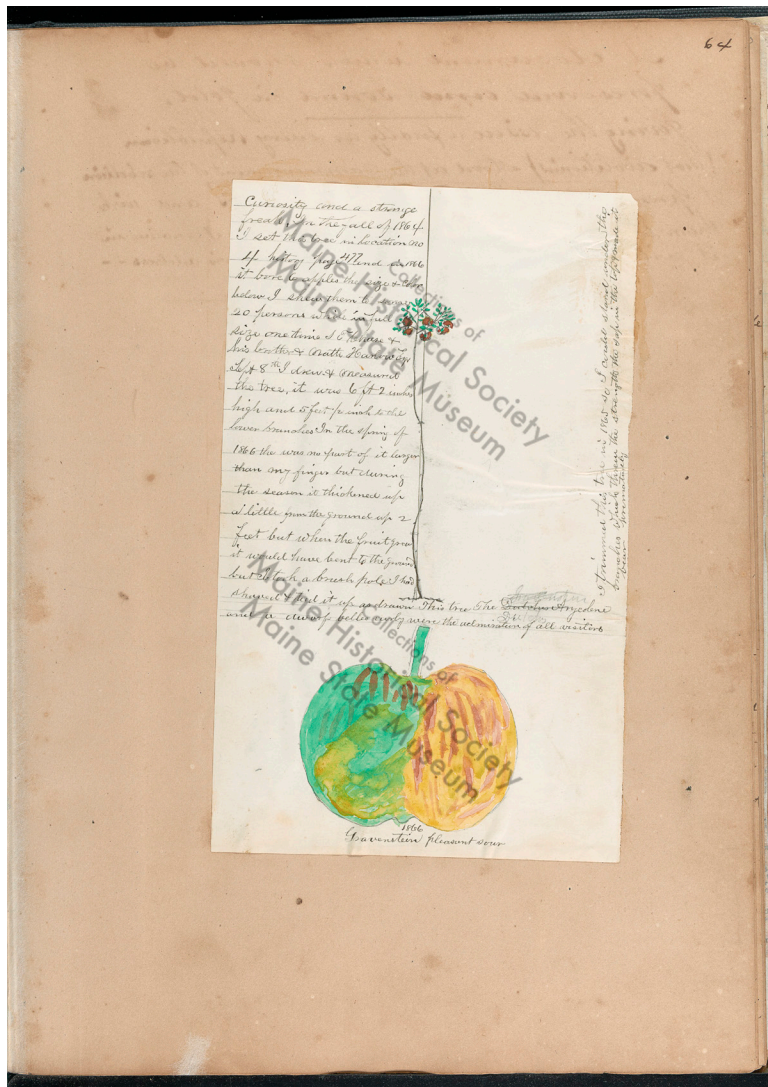 64
Curiosity and a strange
freak. In the fall of 1864
I set the tree in location no
4 history page 477 and in 1866
it bore apples the size &
below I shew them to
20 persons while in full
size one time S C &
his brother &
Sept 8th I drew & measured
the tree, it was 6 ft 2 inches
high and 5 feet inch to the
lower branches In the spring of
1866 the was no part of it larger
than my finger but during
the season it thickened up
a little from the ground up 2
feet but when the fruit grew
it would have bent to the ground
but I took a brush pole I had
shaved & tied it up as drawn This tree The
and a dwarf were the admiration of all visitors
I trimmed this tree in 1865 so I could stand under the
branches which threw the strength the sap in the top & made it
bear prematurely
1866
Gravenstein pleasant sour
Collections of
Maine Historical Society
Maine State Museum
Collections of
Maine Historical Society
Maine State Museum